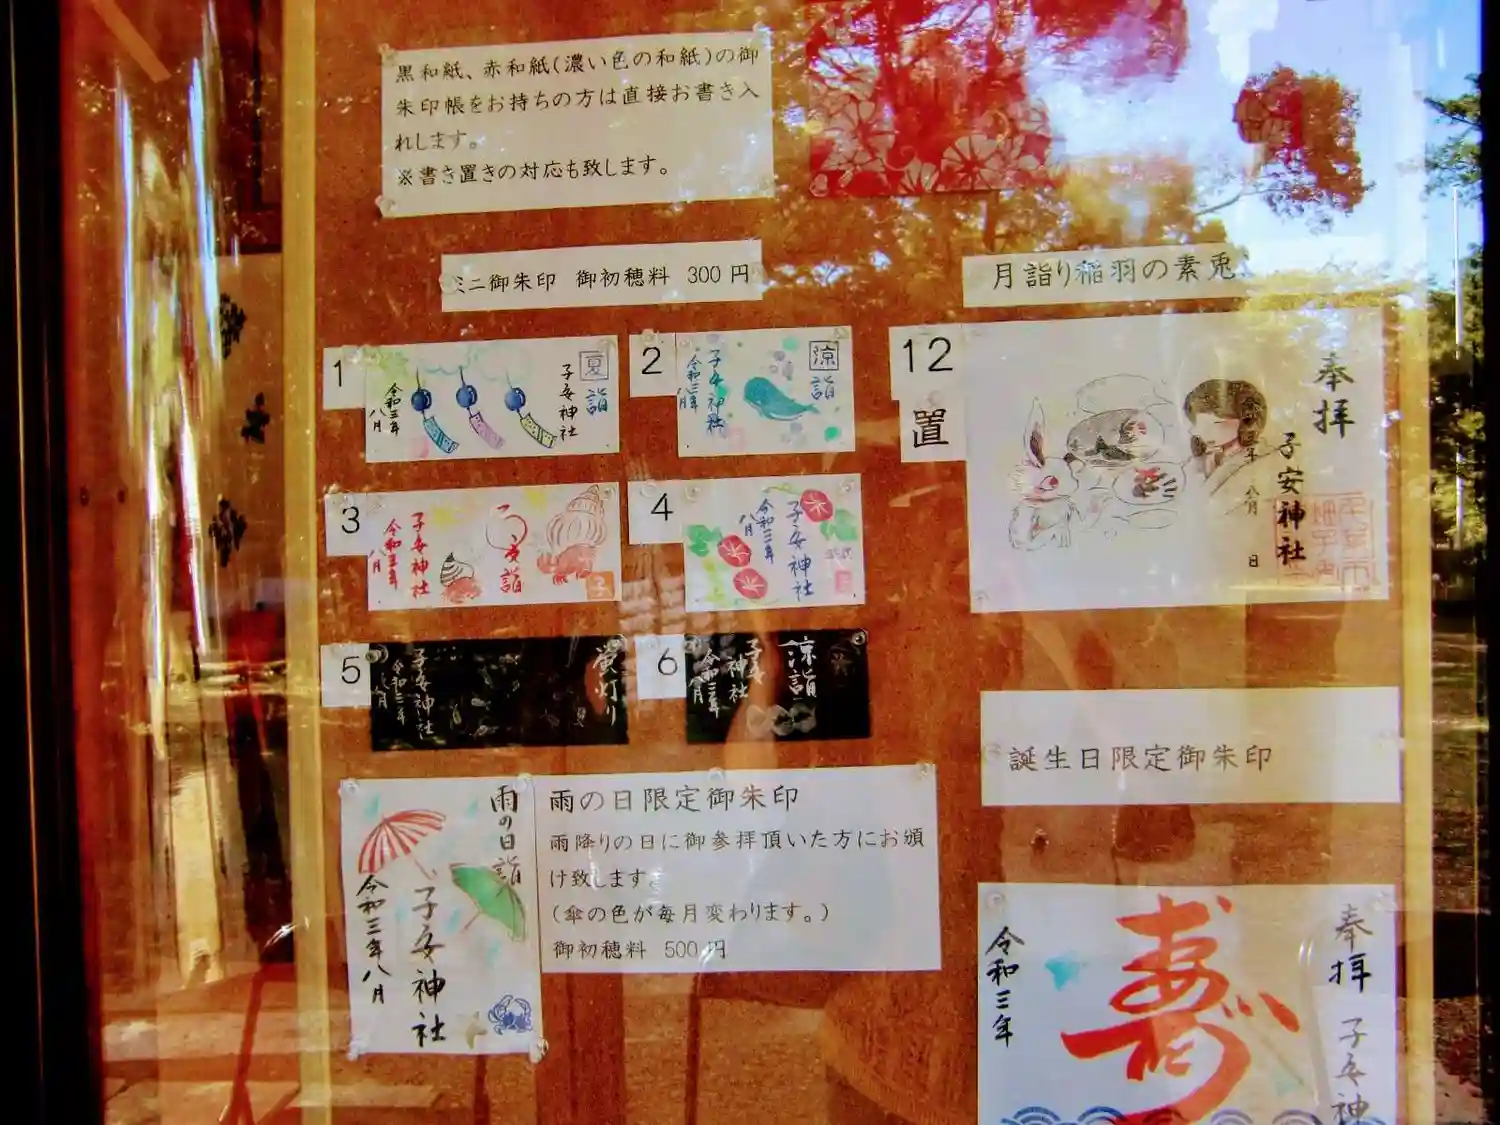 黒和紙、赤和紙(濃い色の和紙)の御
朱印帳をお持ちの方は直接お書き入
れします。
※書き置きの対応も致します。
ミニ御朱印 御初穂料 300円
月詣り稲羽の素兎
1
夏詣
子安神社
令和三年
八月
2
涼詣
子安神社
令和三年
八月
12
置
奉拝
子安神社
令和三年 八月 日
3
う
詣
子安神社
令和三年
八月
4
子安神社
令和三年
八月
5
蛍灯り
子安神社
令和三年
八月
6
涼詣
子安
神社
令和三年
八月
雨の日詣
子安神社
令和三年八月
雨の日限定御朱印
雨降りの日に御参拝頂いた方にお頒
け致します。
(傘の色が毎月変わります。)
御初穂料 500円
誕生日限定御朱印
奉拝
子安神
寿
令和三年